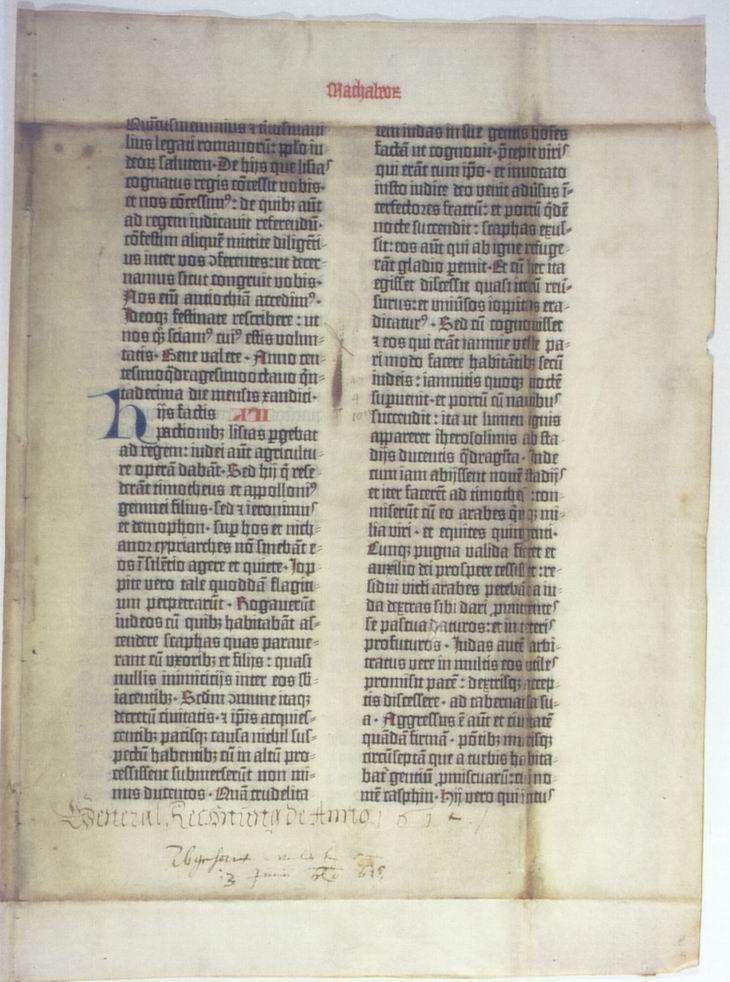 Machabeoꝝ
Quītus memmius ⁊ titus mani
lius legati romanorū: pplo iu
deoꝝ salutem. De hijs que lisias
cognatus regis cōcessit vobis.
et nos cōcessimꝰ: de quibꝫ aūt
ad regem iudicauit referendū.
cōfestim aliquē mittite diligēti-
us inter vos ↄferentes: ut decer-
namus sicut congruit vobis.
Nos eīm antiochiā accedimꝰ.
Ideoqꝫ festinate rescribere: ut
nos qꝫ sciamꝰ cuiꝰ estis volun-
tatis. Bene valete. Anno cen-
tesimo q̄dragesimo octauo q̄n-
tadecima die mensis xandici.
Hijs factis XII
pactionibꝫ lisias pgebat
ad regem: iudei aūt agricultu-
re operā dabāt. Sed hij q̄ rese-
derāt timotheus et appolloniꝰ
gennei filius. sed ⁊ ieronimus
et demophon. sup hos et nich-
anor cypriarches nō sinebāt e-
os ī silētio agere et quiete. Iop-
pite vero tale quoddā flagiti-
um perpetrarūt. Rogauerūt
iudeos cū quibꝫ habitabāt as-
cendere scaphas quas paraue-
rant cū vxoribꝫ et filijs: quasi
nullis inimicicijs inter eos sb-
iacentibꝫ. Scdm ↄmune itaqꝫ
decretū ciuitatis. ⁊ ipīs acquies-
centibꝫ pacisqꝫ causa nichil sus-
pectū habentibꝫ cū in altū pro-
cessissent submerserūt non mi-
nus ducentos. Quā crudelita
tem iudas in sue gentis hoīes
factā ut cognouit. p̄cepit viris
qui erāt cum ipo. et inuocato
iusto iudice deo venit aduersus ī-
terfectores fratrū: et portū q̄dē
nocte succendit: scaphas exus-
sit: eos aūt qui ab igne refuge-
rāt gladio pemit. Et cū hec ita
egisset discessit quasi iterū reu-
sursus: et vniuersos ioppitas era-
dicaturꝰ. Sed cū cognouisset
⁊ eos qui erāt iamnie velle pa-
ri modo facere habitātibꝫ secū
iudeis: iamnitis quoqꝫ nocte
supuenit. et portū cū nauibus
succendit: ita ut lumen ignis
appareret iherosolimis ab sta-
dijs ducentis q̄dragīta. Inde
cum iam abijssent nouē stadijs
et iter facerēt ad timotheū: com-
miserūt cū eo arabes qīnqꝫ mi-
lia viri. et equites quingenti.
Cumqꝫ pugna valida fieret et
auxilio dei prospere cessisset: re-
sidui victi arabes petebāt a iu-
da dextras sibi dari promittentes
se pascua daturos: et in ceteris
profuturos. Iudas autē arbi-
tratus vere in multis eos vtiles
promisit pacē: dextrisqꝫ accep-
tis discessere. ad tabernacula su-
a. Aggressus ē aūt et ciuitatē
quādā firmā. pōtibꝫ murisqꝫ
circūseptā que a turbis habita-
bat gentiū pmiscuarū: cui no-
mē casphin. Hij vero qui intus
General Reconinng De Anno 161